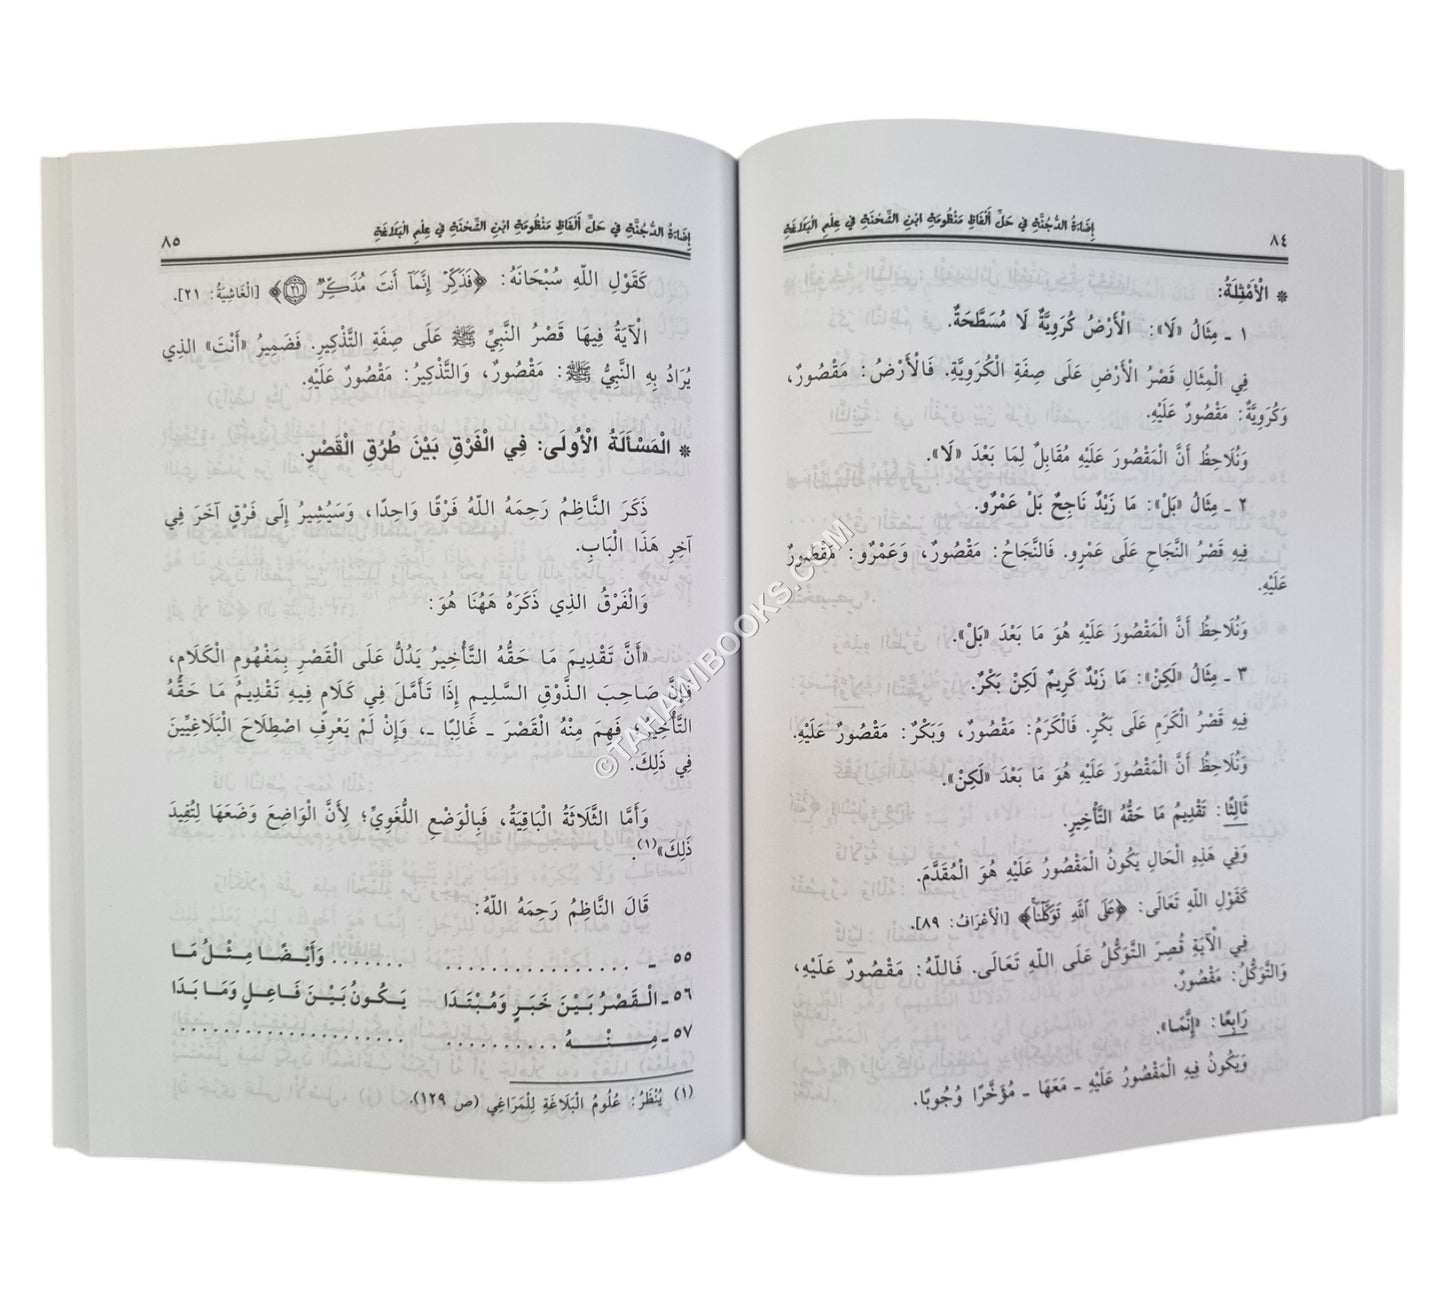 إِضَاءَةُ الدُّجُنَّةِ فِي حَلِّ أَلْفَاظِ مَنْظُومَةِ ابْنِ الشِّحْنَةِ فِي عِلْمِ الْبَلَاغَةِ
٨٤
* الْأَمْثِلَةُ:
١ ـ مِثَالُ «لَا»: الْأَرْضُ كُرَوِيَّةٌ لَا مُسَطَّحَةٌ.
فِي الْمِثَالِ قَصْرُ الْأَرْضِ عَلَى صِفَةِ الْكُرَوِيَّةِ. فَالْأَرْضُ: مَقْصُورٌ،
وَكُرَوِيَّةٌ: مَقْصُورٌ عَلَيْهِ.
وَنُلَاحِظُ أَنَّ الْمَقْصُورَ عَلَيْهِ مُقَابِلٌ لِمَا بَعْدَ «لَا».
٢ ـ مِثَالُ «بَلْ»: مَا زَيْدٌ نَاجِحٌ بَلْ عَمْرٌو.
فِيهِ قَصْرُ النَّجَاحِ عَلَى عَمْرٍو. فَالنَّجَاحُ: مَقْصُورٌ، وَعَمْرٌو: مَقْصُورٌ
عَلَيْهِ.
وَنُلَاحِظُ أَنَّ الْمَقْصُورَ عَلَيْهِ هُوَ مَا بَعْدَ «بَلْ».
٣ ـ مِثَالُ «لَكِنْ»: مَا زَيْدٌ كَرِيمٌ لَكِنْ بَكْرٌ.
فِيهِ قَصْرُ الْكَرَمِ عَلَى بَكْرٍ. فَالْكَرَمُ: مَقْصُورٌ، وَبَكْرٌ: مَقْصُورٌ عَلَيْهِ.
وَنُلَاحِظُ أَنَّ الْمَقْصُورَ عَلَيْهِ هُوَ مَا بَعْدَ «لَكِنْ».
ثَالِثًا: تَقْدِيمُ مَا حَقُّهُ التَّأْخِيرِ.
وَفِي هَذِهِ الْحَالِ يَكُونُ الْمَقْصُورُ عَلَيْهِ هُوَ الْمُقَدَّمَ.
كَقَوْلِ اللّهِ تَعَالَى: ﴿عَلَى ٱللَّهِ تَوَكَّلْنَا﴾ [الْأَعْرَافُ: ٨٩].
فِي الْآيَةِ قُصِرَ التَّوَكُّلُ عَلَى اللّهِ تَعَالَى. فَاللّهُ: مَقْصُورٌ عَلَيْهِ،
وَالتَّوَكُّلُ: مَقْصُورٌ.
رَابِعًا: «إِنَّمَا».
وَيَكُونُ فِيهِ الْمَقْصُورُ عَلَيْهِ ـ مَعَهَا ـ مُؤَخَّرًا وُجُوبًا.
إِضَاءَةُ الدُّجُنَّةِ فِي حَلِّ أَلْفَاظِ مَنْظُومَةِ ابْنِ الشِّحْنَةِ فِي عِلْمِ الْبَلَاغَةِ
٨٥
كَقَوْلِ اللّهِ سُبْحَانَهُ: ﴿فَذَكِّرْ إِنَّمَآ أَنتَ مُذَكِّرٌ ٢١﴾ [الْغَاشِيَةُ: ٢١].
الْآيَةُ فِيهَا قَصْرُ النَّبِيِّ ﷺ عَلَى صِفَةِ التَّذْكِيرِ. فَضَمِيرُ «أَنْتَ» الذِي
يُرَادُ بِهِ النَّبِيُّ ﷺ: مَقْصُورٌ، وَالتَّذْكِيرُ: مَقْصُورٌ عَلَيْهِ.
* الْمَسْأَلَةُ الْأُولَى: فِي الْفَرْقِ بَيْنَ طُرُقِ الْقَصْرِ.
ذَكَرَ النَّاظِمُ رَحِمَهُ اللّهُ فَرْقًا وَاحِدًا، وَسَيُشِيرُ إِلَى فَرْقٍ آخَرَ فِي
آخِرِ هَذَا الْبَابِ.
وَالْفَرْقُ الذِي ذَكَرَهُ هَهُنَا هُوَ:
«أَنَّ تَقْدِيمَ مَا حَقُّهُ التَّأْخِيرُ يَدُلُّ عَلَى الْقَصْرِ بِمَفْهُومِ الْكَلَامِ،
فَإِنَّ صَاحِبَ الذَّوْقِ السَّلِيمِ إِذَا تَأَمَّلَ فِي كَلَامٍ فِيهِ تَقْدِيمُ مَا حَقُّهُ
التَّأْخِيرُ، فَهِمَ مِنْهُ الْقَصْرَ ـ غَالِبًا ـ، وَإِنْ لَمْ يَعْرِفِ اصْطِلَاحَ الْبَلَاغِيِّينَ
فِي ذَلِكَ.
وَأَمَّا الثَّلَاثَةُ الْبَاقِيَةُ، فَبِالْوَضْعِ اللُّغَوِيِّ؛ لِأَنَّ الْوَاضِعَ وَضَعَهَا لِتُفِيدَ
ذَلِكَ»(١).
قَالَ النَّاظِمُ رَحِمَهُ اللّهُ:
٥٥ ـ ................ ....... وَأَيْضًا مِثْلُ مَا
٥٦ ـ الْقَصْرُ بَيْنَ خَبَرٍ وَمُبْتَدَا يَكُونُ بَيْنَ فَاعِلٍ وَمَا بَدَا
٥٧ ـ مِنْهُ .......... ....................
(١) يُنْظَرُ: عُلُومُ الْبَلَاغَةِ لِلْمَرَاغِي (ص ١٢٩).
©TAHAWIBOOKS.COM